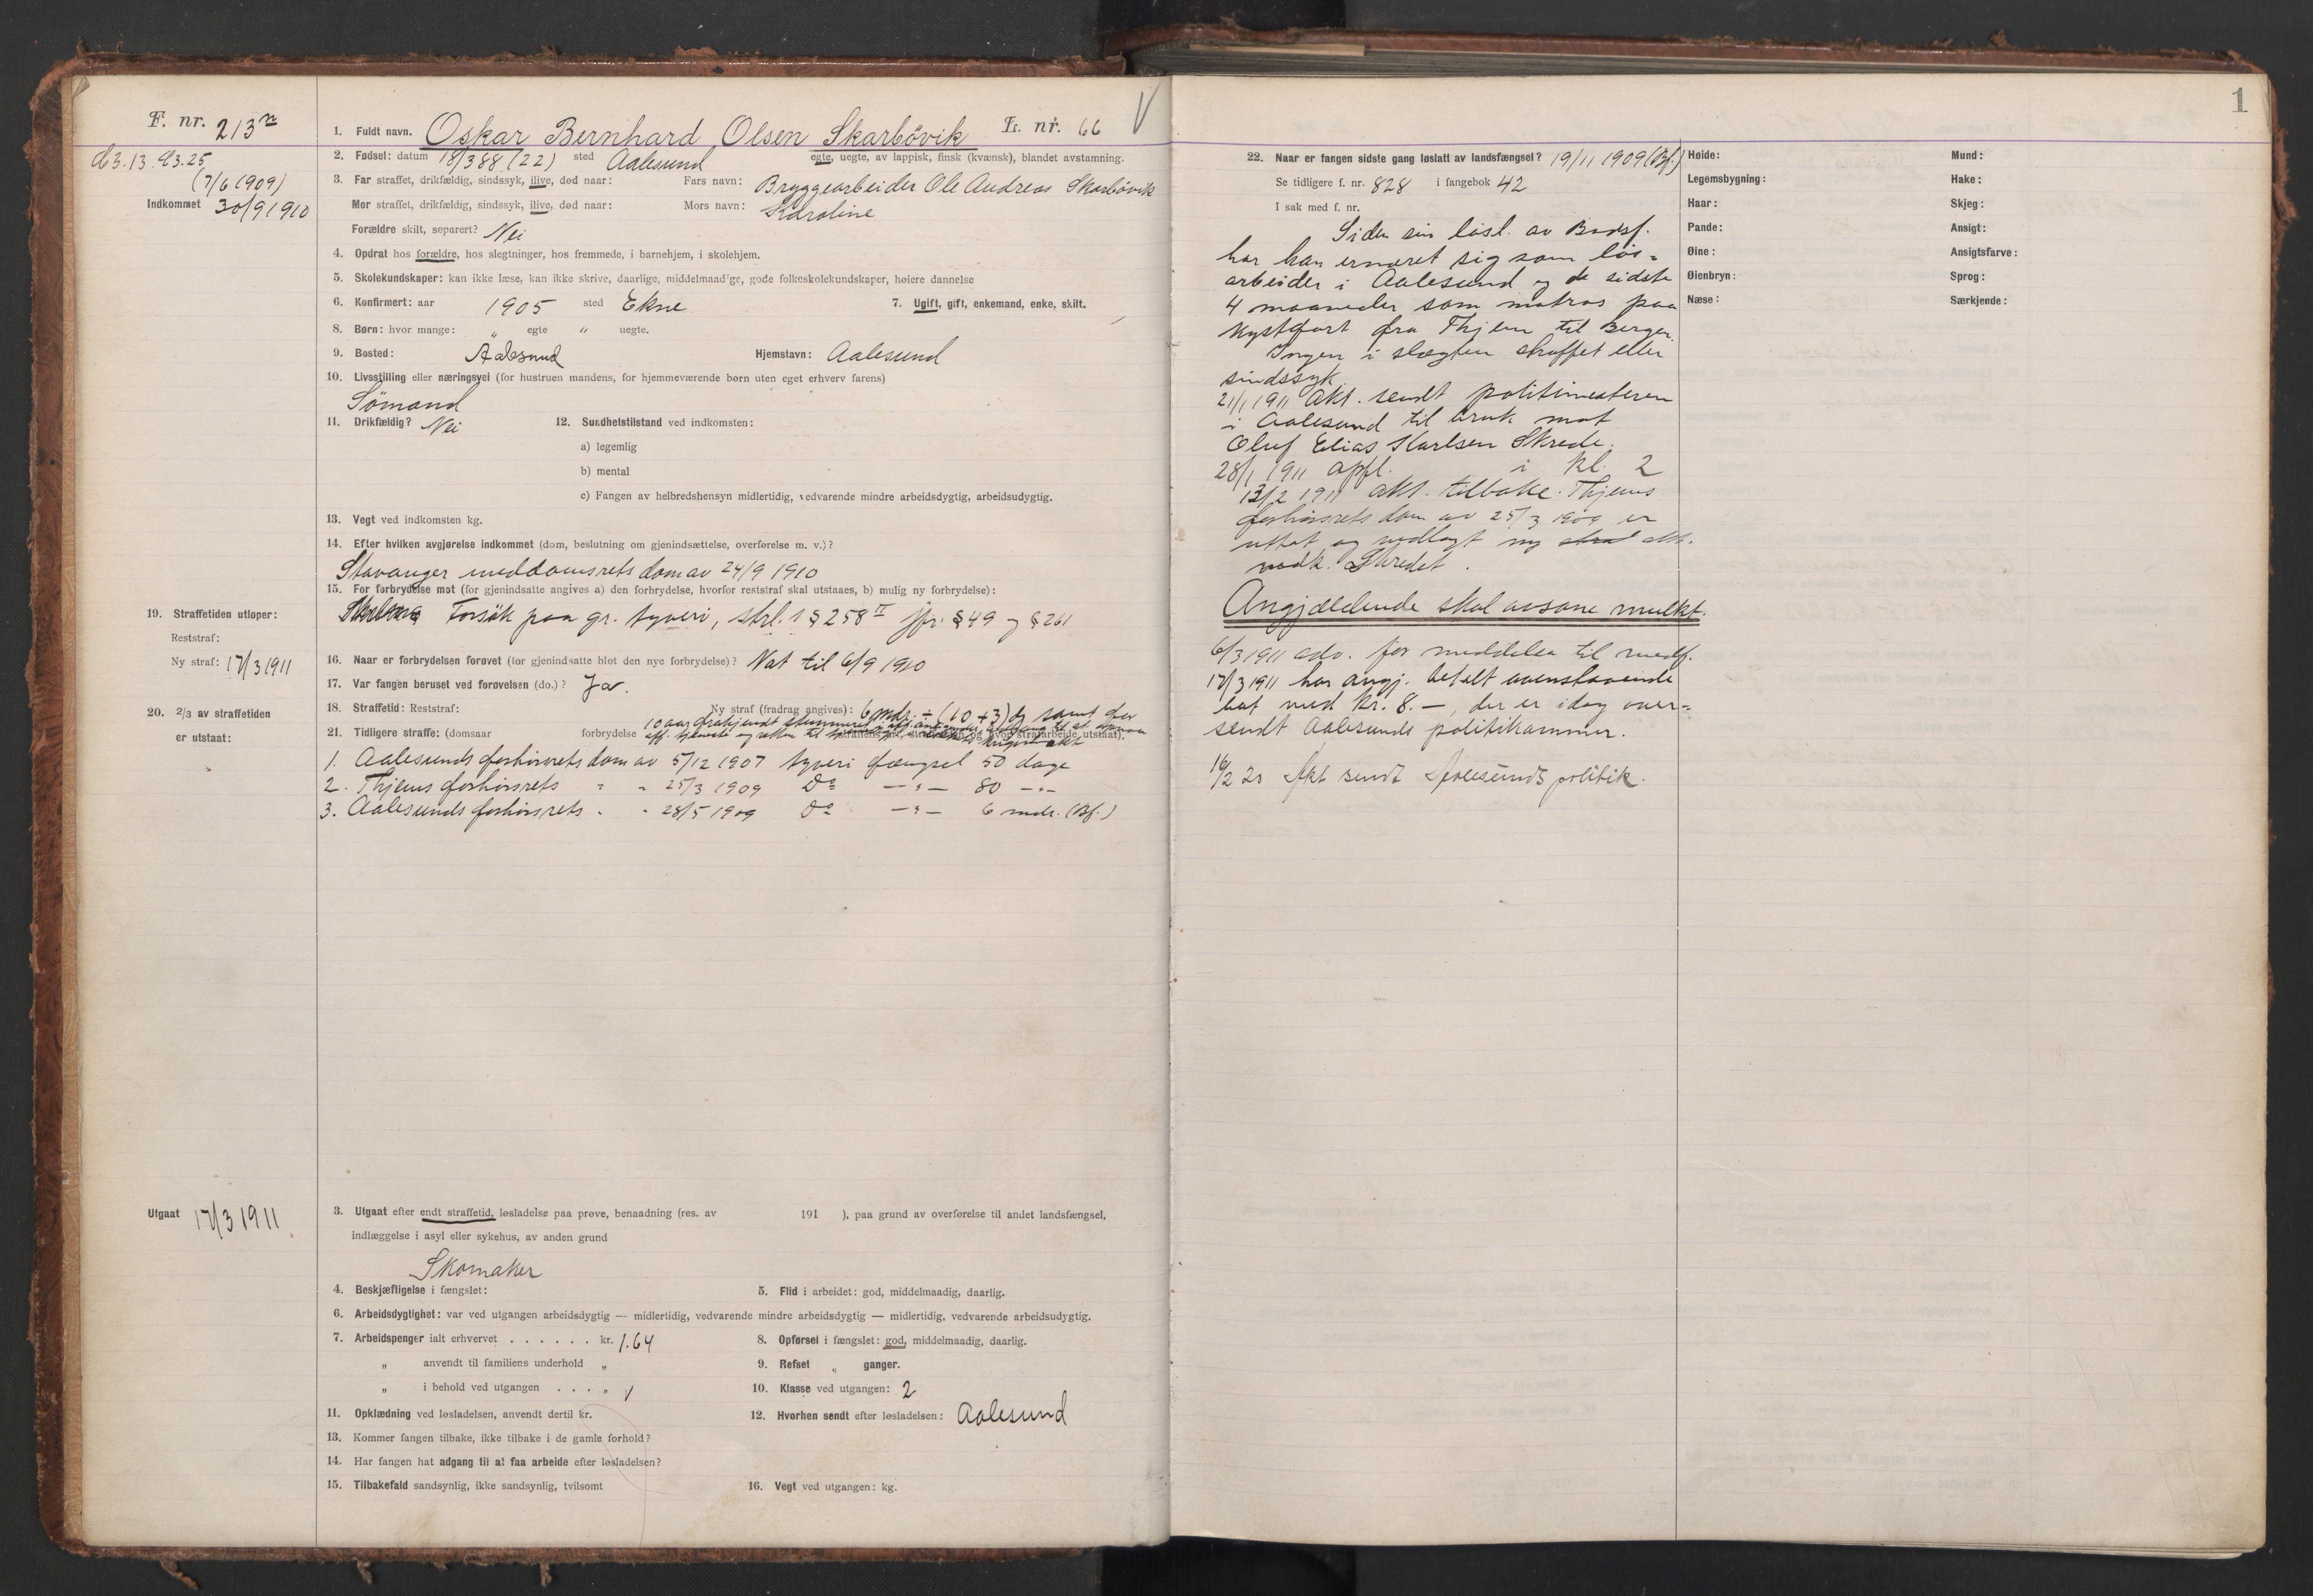 F. nr. 213
d3.13.d3.25
(7/6 1909)
Indkommet 30/9 1910
1. Fuldt navn. Oskar Bernhard Olsen Skarbövik L. nr. 66
2. Fødsel: datum 18/3 88 (22) sted Aalesund egte, uegte, av lappisk, finsk (kvænsk), blandet avstamning.
3. Far straffet, drikfældig, sindssyk, ilive, død naar: Fars navn: Bryggearbeider Ole Andreas Skarbövik
Mor straffet, drikfældig, sindssyk, ilive, død naar: Mors navn: Karoline
Forældre skilt, separert? Nei
4. Opdrat hos forældre, hos slegtninger, hos fremmede, i barnehjem, i skolehjem.
5. Skolekundskaper: kan ikke læse, kan ikke skrive, daarlige, middelmaadige, gode folkeskolekundskaper, høiere dannelse
6. Konfirmert: aar 1905 sted Ekne 7. Ugift, gift, enkemand, enke, skilt.
8. Børn: hvor mange: " egte " uegte.
9. Bosted: Aalesund Hjemstavn: Aalesund
10. Livsstilling eller næringsvei (for hustruen mandens, for hjemmeværende børn uten eget erhverv farens)
Sömand
11. Drikfældig? Nei 12. Sundhetstilstand ved indkomsten:
a) legemlig
b) mental
c) Fangen av helbredshensyn midlertidig, vedvarende mindre arbeidsdygtig, arbeidsudygtig.
13. Vegt ved indkomsten kg.
14. Efter hvilken avgjørelse indkommet (dom, beslutning om gjenindsættelse, overførelse m. v.)?
Stavanger meddomsrets dom av 24/9 1910
15. For forbrydelse mot (for gjenindsatte angives a) den forbrydelse, hvorfor reststraf skal utstaaes, b) mulig ny forbrydelse):
Forsök paa gr. tyveri, strl. § 258 II jfr. § 49 og § 261
19. Straffetiden utløper:
Reststraf:
Ny straf: 17/3 1911
16. Naar er forbrydelsen forøvet (for gjenindsatte blot den nye forbrydelse)? Nat til 6/9 1910
17. Var fangen beruset ved forøvelsen (do.)? Ja.
18. Straffetid: Reststraf: Ny straf (fradrag angives): 6 mdr. ÷ (10 + 3) dg samt for
20. 2/3 av straffetiden
er utstaat:
10 aar frakjendt stemmeret i off. anliggender
21. Tidligere straffe: (domsaar forbrydelse straffens art, hvor strafarbeide utstaat).
1. Aalesunds forhörsrets dom av 5/12 1907 tyveri fængsel 50 dage
2. Thjems forhörsrets " " 25/3 1909 Do — " — 80 — " —
3. Aalesunds forhörsrets " " 28/5 1909 Do — " — 6 mdr. (Bf.)
Utgaat 17/3 1911
3. Utgaat efter endt straffetid, løsladelse paa prøve, benaadning (res. av 191 ), paa grund av overførelse til andet landsfængsel,
indlæggelse i asyl eller sykehus, av anden grund
Skomaker
4. Beskjæftigelse i fængslet: 5. Flid i arbeidet: god, middelmaadig, daarlig.
6. Arbeidsdygtighet: var ved utgangen arbeidsdygtig — midlertidig, vedvarende mindre arbeidsdygtig — midlertidig, vedvarende arbeidsudygtig.
7. Arbeidspenger ialt erhvervet . . . . . . kr. 1.64 8. Opførsel i fængslet: god, middelmaadig, daarlig.
" anvendt til familiens underhold " 9. Refset " ganger.
" i behold ved utgangen . . . " 10. Klasse ved utgangen: 2
11. Opklædning ved løsladelsen, anvendt dertil kr. 12. Hvorhen sendt efter løsladelsen: Aalesund
13. Kommer fangen tilbake, ikke tilbake i de gamle forhold?
14. Har fangen hat adgang til at faa arbeide efter løsladelsen?
15. Tilbakefald sandsynlig, ikke sandsynlig, tvilsomt 16. Vegt ved utgangen: kg.
1
22. Naar er fangen sidste gang løslatt av landsfængsel? 19/11 1909 (Bf.)
Se tidligere f. nr. 828 i fangebok 42
I sak med f. nr.
Siden sin lösl. av Bodsf.
har han ernæret sig som lös=
arbeider i Aalesund og de sidste
4 maaneder som matros paa
kystfart fra Thjem til Bergen.
Ingen i slægten straffet eller
sindssyk.
21/1 1911 Akt. sendt politimesteren
i Aalesund til bruk mot
Oluf Elias Karlsen Skrede.
28/1 1911 opfl. i kl. 2
13/2 1911 akt. tilbake. Thjems
forhörsrets dom av 25/3 1909 er
uttat og vedlagt ny akt.
vedk. Skredet.
Angjældende skal avsone mulkt.
6/3 1911 adv. før meddelse til medf.
17/3 1911 har angj. betalt ovenstaaende
bot med kr. 8.—, der er idag over=
sendt Aalesunds politikammer.
16/2 21 Akt sendt Aalesunds politik.
Høide: Mund:
Legemsbygning: Hake:
Haar: Skjeg:
Pande: Ansigt:
Øine: Ansigtsfarve:
Øienbryn: Sprog:
Næse: Særkjende: